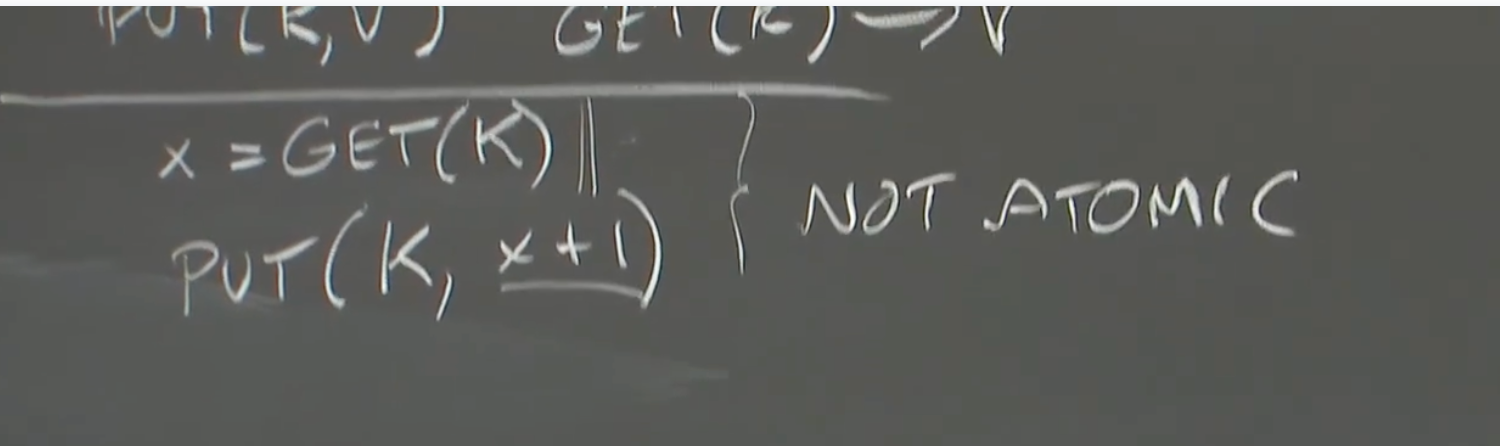 PUT(K,V) GET(K) → V
x = GET(K)
PUT(K, x+1)
NOT ATOMIC